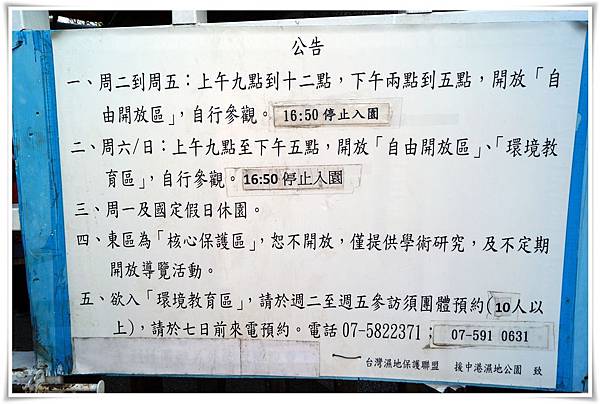 公告
一、周二到周五：上午九點到十二點，下午兩點到五點，開放「自
由開放區」，自行參觀。 16:50 停止入園
二、周六/日：上午九點至下午五點，開放「自由開放區」、「環境教
育區」，自行參觀。 16:50 停止入園
三、周一及國定假日休園。
四、東區為「核心保護區」，恕不開放，僅提供學術研究，及不定期
開放導覽活動。
五、欲入「環境教育區」，請於週二至週五參訪須團體預約(10人以
上)，請於七日前來電預約。電話 07-5822371； 07-591 0631
台灣濕地保護聯盟 援中港濕地公園 致